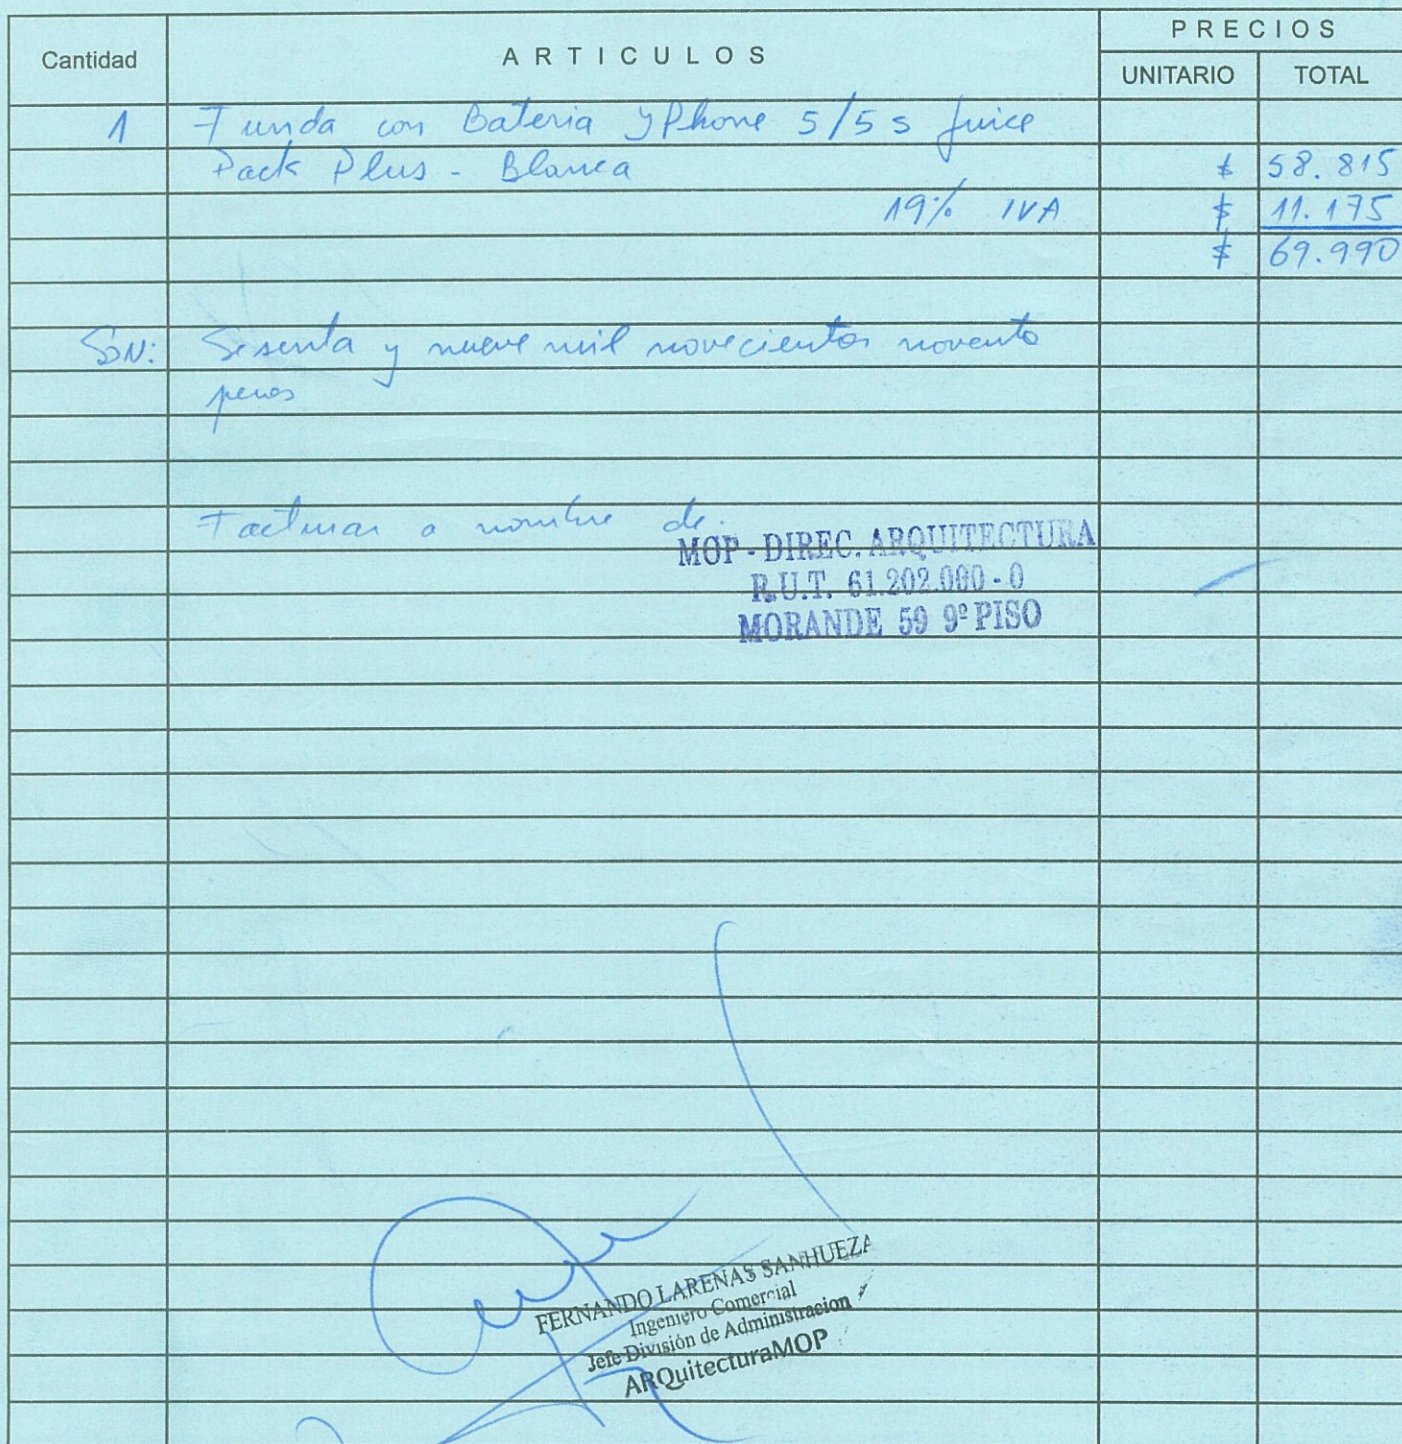 Cantidad
ARTICULOS
PRECIOS
UNITARIO TOTAL
1 Funda con Bateria YPhone 5/5s Juice
Pack Plus - Blanca $ 58.815
19% IVA $ 11.175
$ 69.990
SON: Sesenta y nueve mil novecientos noventa
pesos
Facturar a nombre de:
MOP - DIREC. ARQUITECTURA
R.U.T. 61.202.000 - 0
MORANDE 59 9º PISO
FERNANDO LARENAS SANHUEZA
Ingeniero Comercial
Jefe División de Administracion
ARQuitecturaMOP